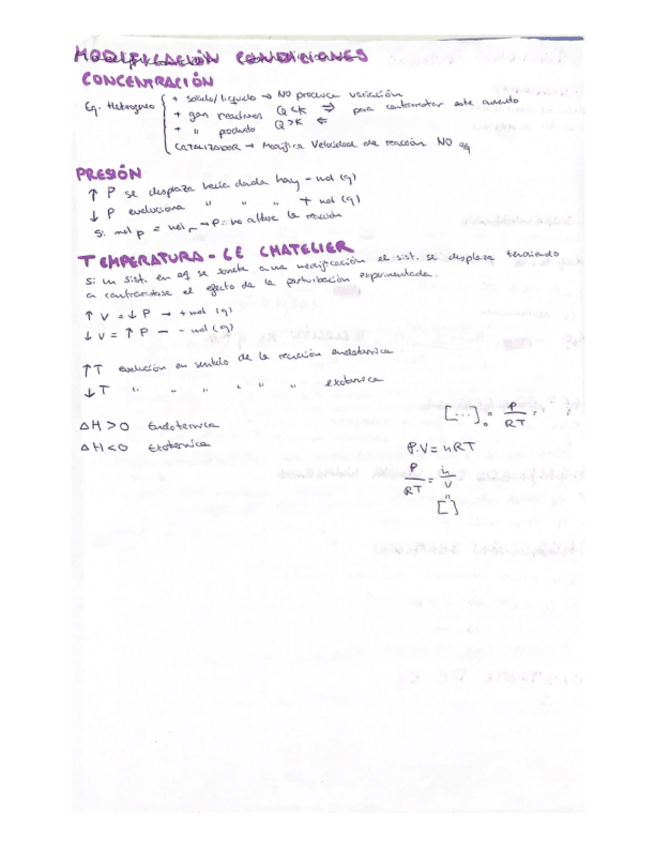 MODIFICACIÓN CONDICIONES
CONCENTRACIÓN
Eq. Heterogéneo { + solido/liquido → NO produce variación
+ gas reactivos Q<K ⇒ para contrarrestar este aumento
+ " producto Q>K ⇐
CATALIZADOR → Modifica Velocidad de reacción NO eq
PRESIÓN
↑ P se desplaza hacia donde hay - mol (g)
↓ P evoluciona " " " + mol (g)
Si mol p = mol r → P no altera la reacción
TEMPERATURA - LE CHATELIER
Si un sist. en eq se somete a una modificación el sist. se desplaza tendiendo
a contrarrestar el efecto de la perturbación experimentada.
↑ V = ↓ P → + mol (g)
↓ V = ↑ P — - mol (g)
↑T evolución en sentido de la reacción endotermica
↓T " " " " " " exotermica
ΔH > 0 Endotermica
ΔH < 0 Exotermica
[...]₀ = P/RT
P.V = nRT
P/RT = n/V
"
[ ]